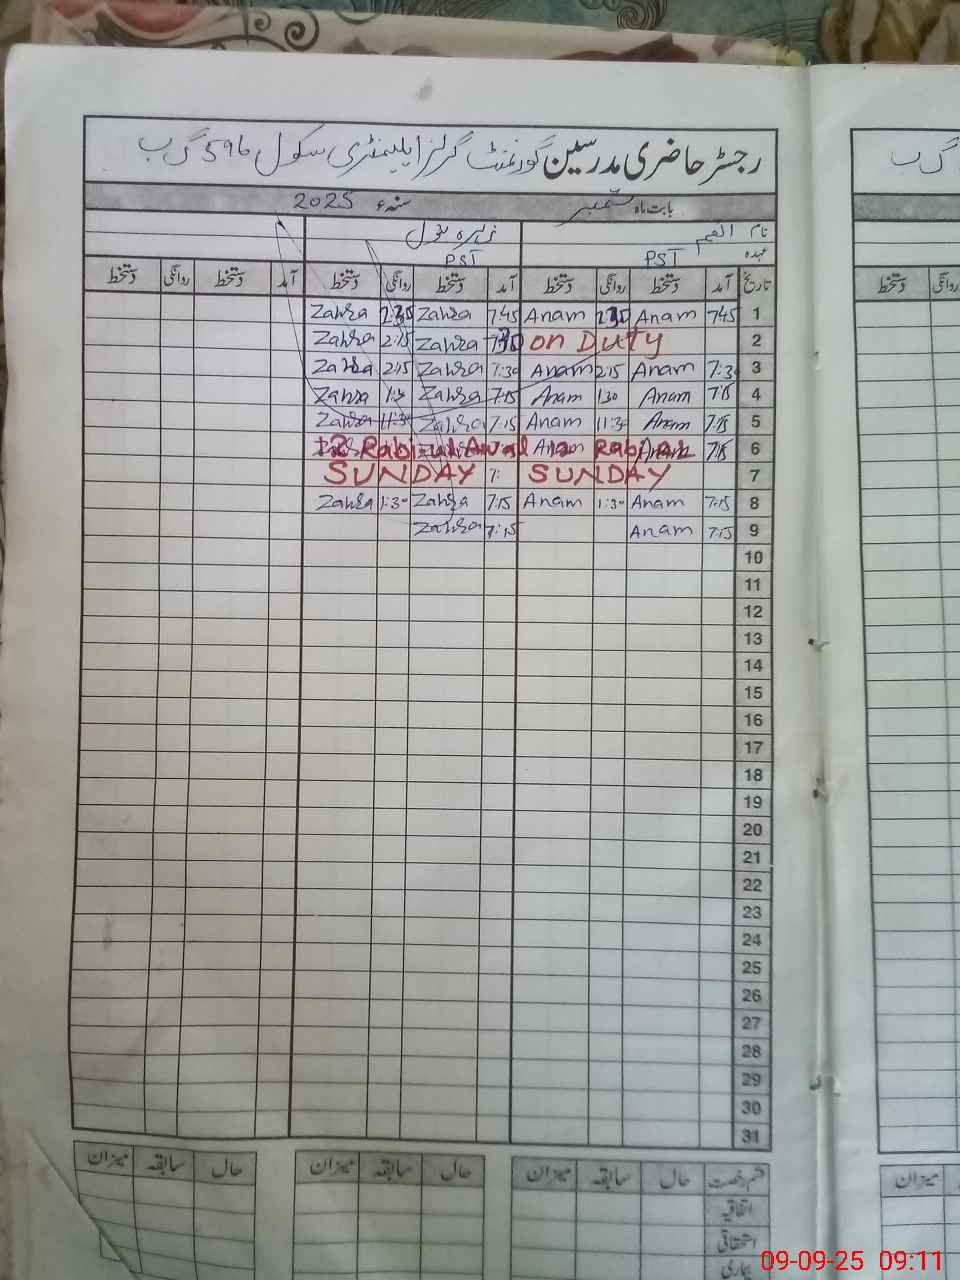 رجسٹر حاضری مدرسین گورنمنٹ گرلز ایلیمنٹری سکول 596 گ ب
بابت ماہ ستمبر سنہء 2025
نام العم زہرہ بتول
عہدہ PST PST
تاریخ آمد دستخط روانگی دستخط آمد دستخط روانگی دستخط آمد دستخط روانگی دستخط
1 7:45 Anam Anam 7:45 Zahra Zahra
2 on Duty Zahra 2:15 Zahra
3 7:30 Anam 2:15 Anam 7:30 Zahra 2:15 Zahra
4 7:15 Anam 1:30 Anam 7:15 Zahra 1:30 Zahra
5 7:15 Anam 11:30 Anam 7:15 Zahra 11:30 Zahra
6 7:15 12 Rabi-ul-Awal 12 Rabi ul
7 SUNDAY SUNDAY
8 7:15 Anam 1:30 Anam 7:15 Zahra 1:30 Zahra
9 7:15 Anam 7:15 Zahra
10
11
12
13
14
15
16
17
18
19
20
21
22
23
24
25
26
27
28
29
30
31
قسم رخصت حال سابقہ میزان حال سابقہ میزان حال سابقہ میزان
اتفاقیہ
استحقاقی
بیماری
گ ب
دستخط روانگی
میزان
09-09-25 09:11